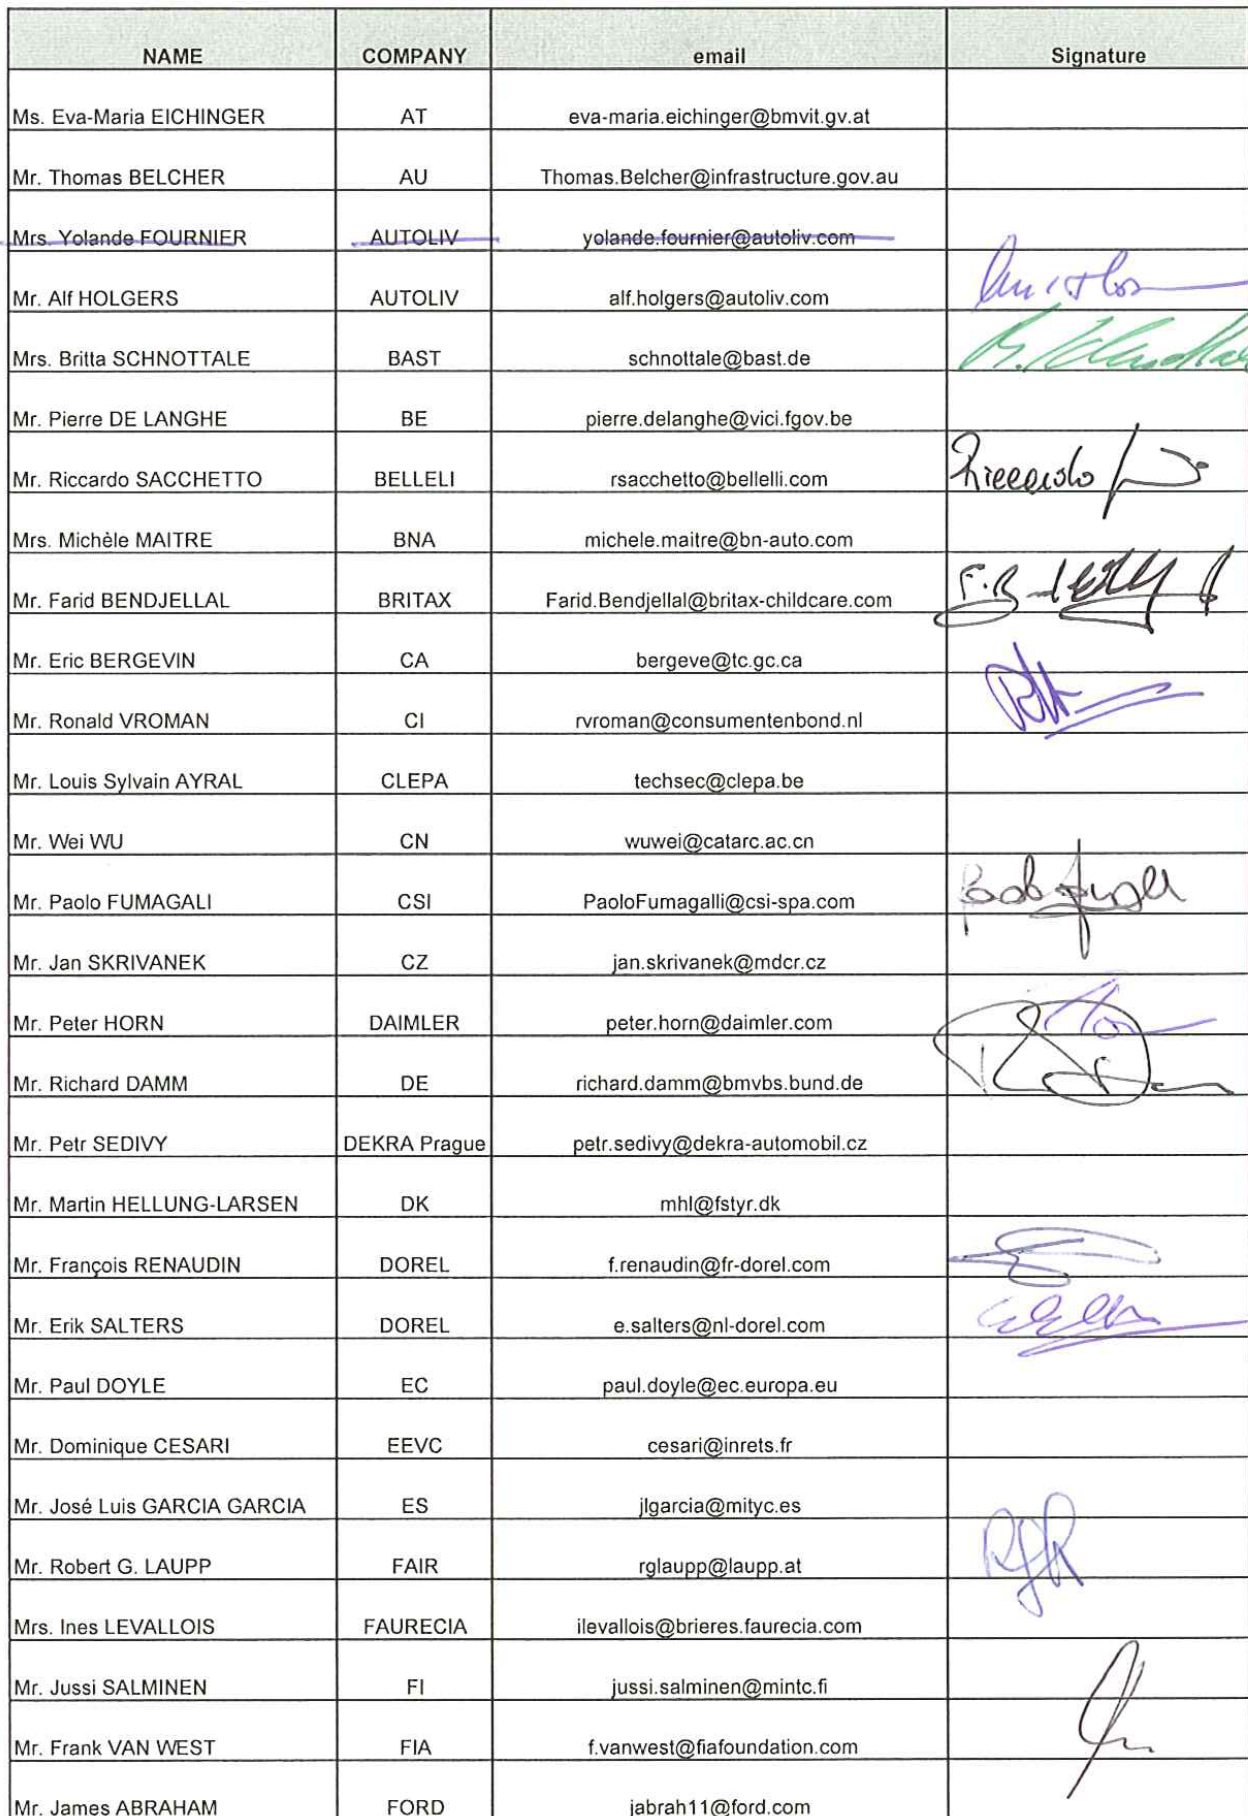 NAME COMPANY email Signature
Ms. Eva-Maria EICHINGER AT eva-maria.eichinger@bmvit.gv.at
Mr. Thomas BELCHER AU Thomas.Belcher@infrastructure.gov.au
Mrs. Yolande FOURNIER AUTOLIV yolande.fournier@autoliv.com
Mr. Alf HOLGERS AUTOLIV alf.holgers@autoliv.com
Mrs. Britta SCHNOTTALE BAST schnottale@bast.de
Mr. Pierre DE LANGHE BE pierre.delanghe@vici.fgov.be
Mr. Riccardo SACCHETTO BELLELI rsacchetto@bellelli.com Riccardo
Mrs. Michèle MAITRE BNA michele.maitre@bn-auto.com
Mr. Farid BENDJELLAL BRITAX Farid.Bendjellal@britax-childcare.com
Mr. Eric BERGEVIN CA bergeve@tc.gc.ca
Mr. Ronald VROMAN CI rvroman@consumentenbond.nl
Mr. Louis Sylvain AYRAL CLEPA techsec@clepa.be
Mr. Wei WU CN wuwei@catarc.ac.cn
Mr. Paolo FUMAGALI CSI PaoloFumagalli@csi-spa.com
Mr. Jan SKRIVANEK CZ jan.skrivanek@mdcr.cz
Mr. Peter HORN DAIMLER peter.horn@daimler.com
Mr. Richard DAMM DE richard.damm@bmvbs.bund.de
Mr. Petr SEDIVY DEKRA Prague petr.sedivy@dekra-automobil.cz
Mr. Martin HELLUNG-LARSEN DK mhl@fstyr.dk
Mr. François RENAUDIN DOREL f.renaudin@fr-dorel.com
Mr. Erik SALTERS DOREL e.salters@nl-dorel.com
Mr. Paul DOYLE EC paul.doyle@ec.europa.eu
Mr. Dominique CESARI EEVC cesari@inrets.fr
Mr. José Luis GARCIA GARCIA ES jlgarcia@mityc.es
Mr. Robert G. LAUPP FAIR rglaupp@laupp.at
Mrs. Ines LEVALLOIS FAURECIA ilevallois@brieres.faurecia.com
Mr. Jussi SALMINEN FI jussi.salminen@mintc.fi
Mr. Frank VAN WEST FIA f.vanwest@fiafoundation.com
Mr. James ABRAHAM FORD jabrah11@ford.com